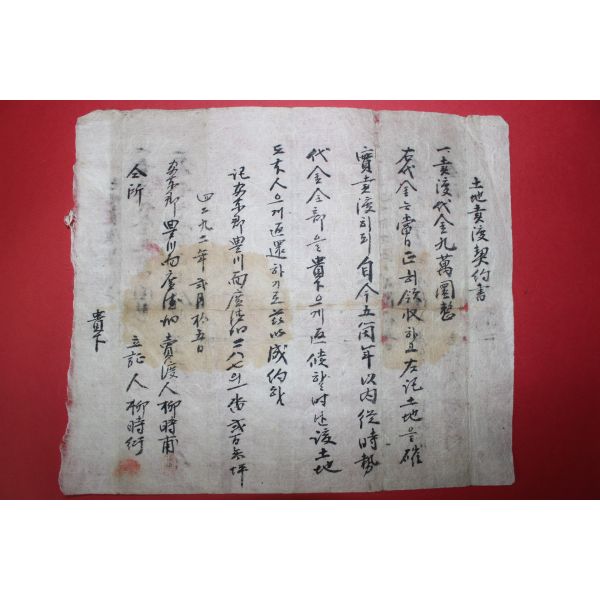 土地賣渡契約書
一 賣渡代金九萬圜整
右代金은 當日 正히 領收하고 左記土地을 確
實 賣渡하되 自今五箇年以內 從時勢
代金全部을 貴下으게 返償할時난 該土地
도 本人으게 返還하기로 玆以成約함
記 安東郡 豊川面 廣德洞 二八七의一 垈 貳百 坪
四二九二年 貳月 拾五日
安東郡 豊川面 廣德洞 賣渡人 柳時甫
仝所 立証人 柳時衍
貴下